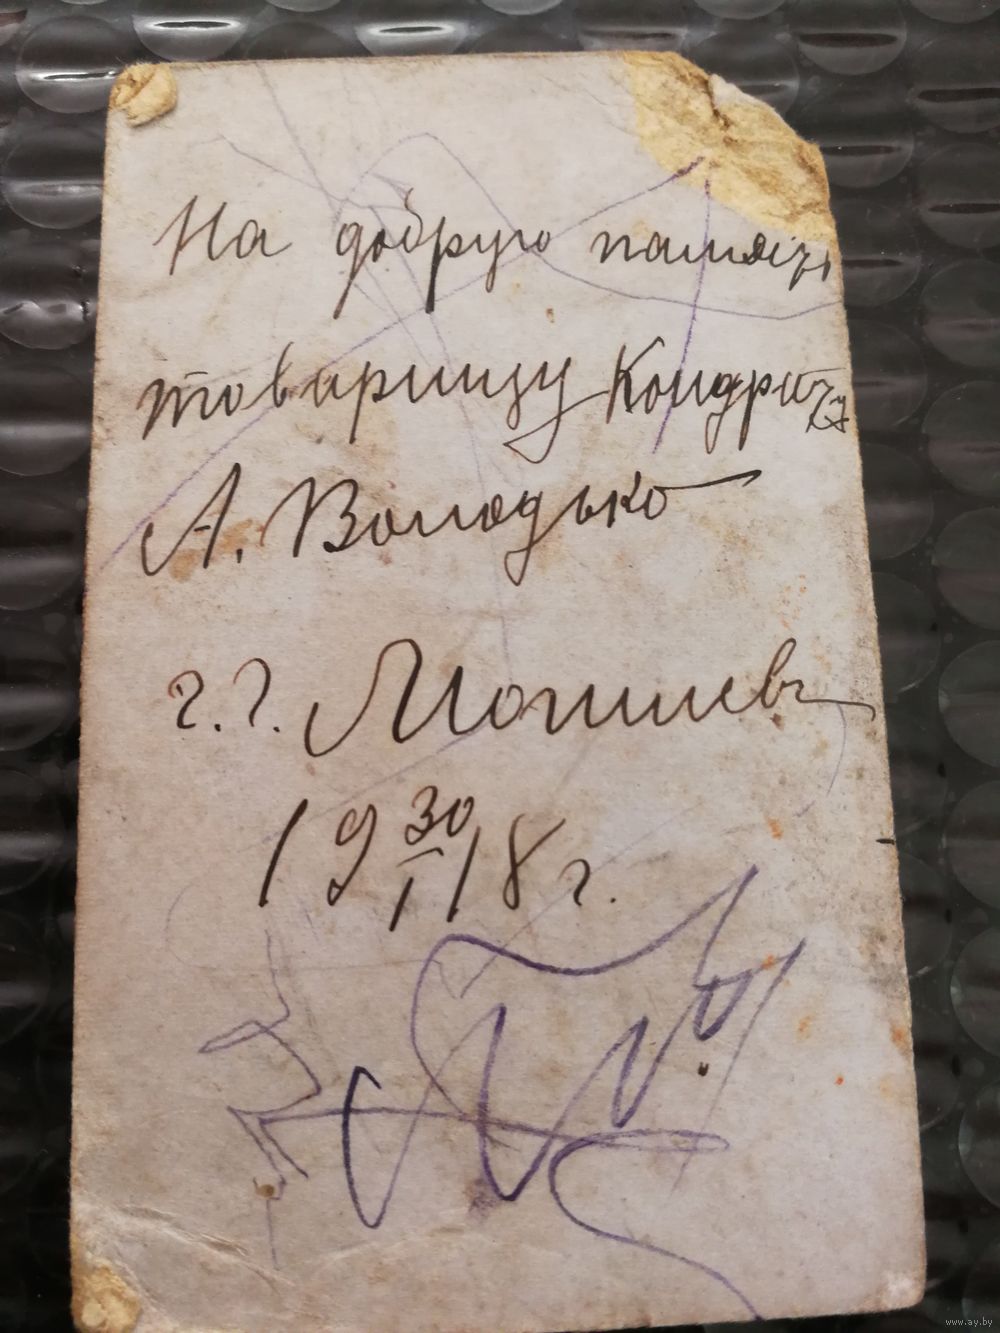 На добрую память
товарищу Кондрату
А. Володько
г. г. Могилевъ
19 30/I 18 г.
www.ay.by